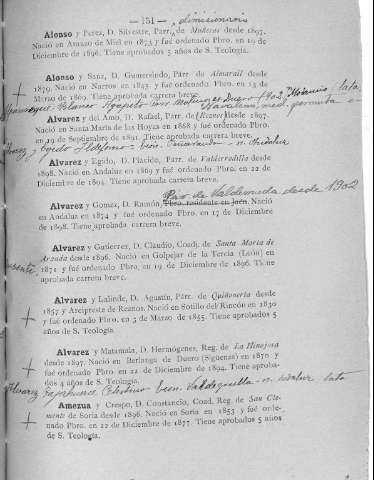 — 151 — dimisionario
Alonso y Perez, D. Silvestre, Párr. de Muñecas desde 1897.
Nació en Arauzo de Miel en 1873 y fué ordenado Pbro. en 19 de
Diciembre de 1896. Tiene aprobados 5 años de S. Teología.
Alonso y Sanz, D. Gumersindo, Párr. de Almarail desde
1879. Nació en Narros en 1843 y fué ordenado Pbro. en 13 de
Marzo de 1869. Tiene aprobada carrera breve.
Blanco Agapito 1902 lata
Alvarez y del Amo, D. Rafael, Párr. de Rexos desde 1897.
Nació en Santa María de las Hoyas en 1868 y fué ordenado Pbro.
en 19 de Septiembre de 1891. Tiene aprobada carrera breve.
Alvarez y Egido Ildefonso
Alvarez y Egido, D. Plácido, Párr. de Valderrodilla desde
1898. Nació en Andaluz en 1869 y fué ordenado Pbro. en 22 de
Diciembre de 1894. Tiene aprobada carrera breve.
Par. de Valdenuada desde 1902
Alvarez y Gomez, D. Ramón, Pbro. residente en Jaén. Nació
en Andaluz en 1874 y fué ordenado Pbro. en 17 de Diciembre
de 1898. Tiene aprobada carrera breve.
Alvarez y Gutierrez, D. Claudio, Coadj. de Santa María de
Aranda desde 1896. Nació en Golpejar de la Tercia (León) en
1871 y fué ordenado Pbro. en 19 de Diciembre de 1896. Tiene
aprobada carrera breve.
Alvarez y Lalinde, D. Agustín, Párr. de Quiñonería desde
1857 y Arcipreste de Reznos. Nació en Sotillo del Rincón en 1830
y fué ordenado Pbro. en 3 de Marzo de 1855. Tiene aprobados 5
años de S. Teología.
Alvarez y Matamala, D. Hermógenes, Reg. de La Hinojosa
desde 1897. Nació en Berlanga de Duero (Sigüenza) en 1870 y
fué ordenado Pbro. en 22 de Diciembre de 1894. Tiene aproba-
dos 4 años de S. Teología.
Alvarez Celestino
Amezua y Crespo, D. Constancio, Coad. Reg. de San Cle-
mente de Soria desde 1896. Nació en Soria en 1853 y fué orde-
nado Pbro. en 22 de Diciembre de 1877. Tiene aprobados 5 años
de S. Teología.